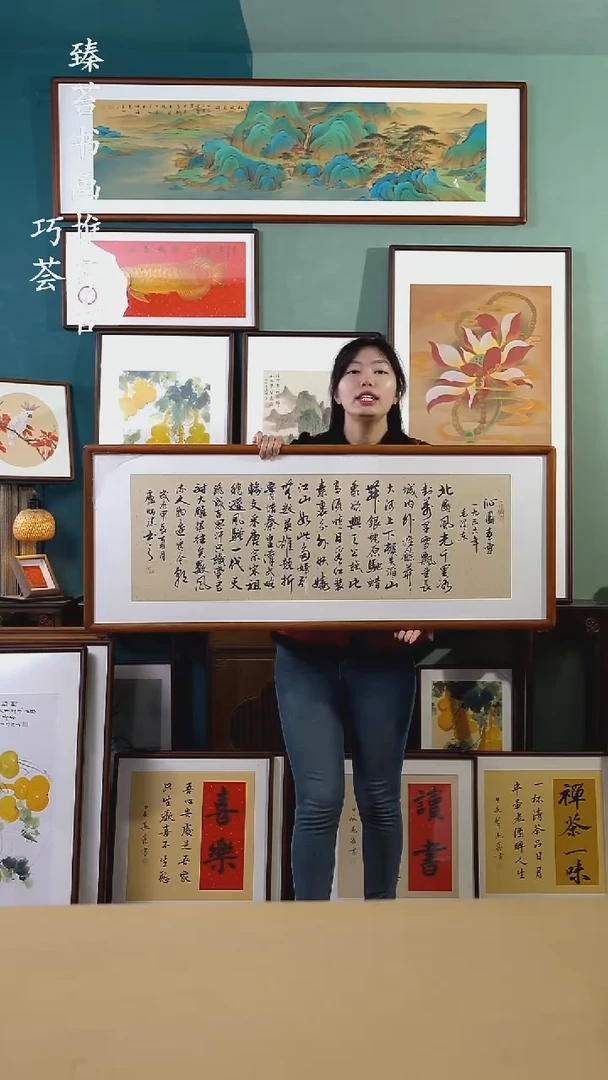 臻荟书画推
巧荟
沁園春雪
一九三六年
北國風光千里冰
封萬里雪飄望長
城內外惟餘莽莽
大河上下頓失滔滔山
舞銀蛇原馳蠟
象欲與天公試比
高須晴日看紅裝
素裹分外妖嬈
江山如此多嬌引
無數英雄競折
腰惜秦皇漢武略
輸文采唐宗宋祖
稍遜風騷一代天
驕成吉思汗只識彎弓
射大雕俱往矣數風
流人物還看今朝
喜樂
吾心安處是吾家
只生歡喜不生愁
讀書
禪茶一味
一杯清茶品日月
半壺老酒醉人生